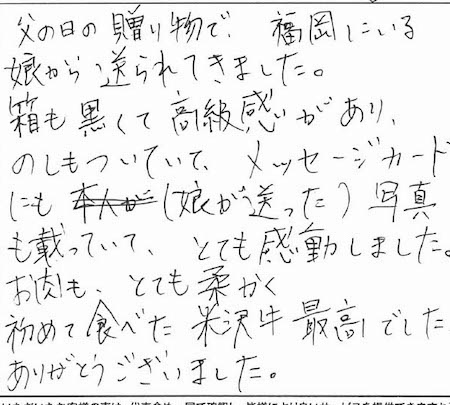 父の日の贈り物で、福岡にいる
娘から送られてきました。
箱も黒くて高級感があり、
のしもついていて、メッセージカード
にも本人が(娘が送った)写真
も載っていて、とても感動しました。
お肉も、とても柔かく
初めて食べた米沢牛最高でした
ありがとうございました。